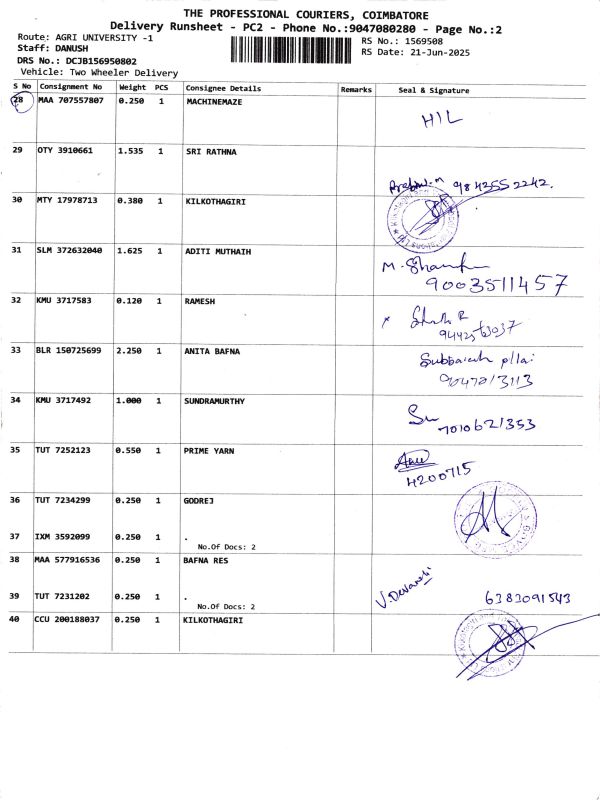 THE PROFESSIONAL COURIERS, COIMBATORE
Delivery Runsheet - PC2 - Phone No.:9047080280 - Page No.:2
Route: AGRI UNIVERSITY -1
Staff: DANUSH
DRS No.: DCJB156950802
Vehicle: Two Wheeler Delivery
RS No.: 1569508
RS Date: 21-Jun-2025
S No Consignment No Weight PCS Consignee Details Remarks Seal & Signature
28 MAA 707557807 0.250 1 MACHINEMAZE
HIL
29 OTY 3910661 1.535 1 SRI RATHNA
9842552242.
30 MTY 17978713 0.380 1 KILKOTHAGIRI
31 SLM 372632040 1.625 1 ADITI MUTHAIH
M. 
9003511457
32 KMU 3717583 0.120 1 RAMESH
33 BLR 150725699 2.250 1 ANITA BAFNA
Subbaiah pllai
34 KMU 3717492 1.000 1 SUNDRAMURTHY
7010621353
35 TUT 7252123 0.550 1 PRIME YARN
4200715
36 TUT 7234299 0.250 1 GODREJ
37 IXM 3592099 0.250 1 .
No.Of Docs: 2
38 MAA 577916536 0.250 1 BAFNA RES
39 TUT 7231202 0.250 1 .
No.Of Docs: 2
6383091543
40 CCU 200188037 0.250 1 KILKOTHAGIRI